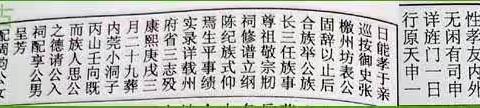 性孝友内外
无闲有司申
详旌门一日
行原天申一
日能孝于亲
巡按御史张
檄州坊表公
固辞以止后
合族举公族
长三任族事
尊祖敬宗刱
祠修谱立纲
陈纪族式仰
焉生平事绩
实录详载州
府省三志殁
康熙庚戌三
月二十九葬
内莞小洞子
丙山壬向既
而族人思公
之德请公入
祠配享公男
呈芳